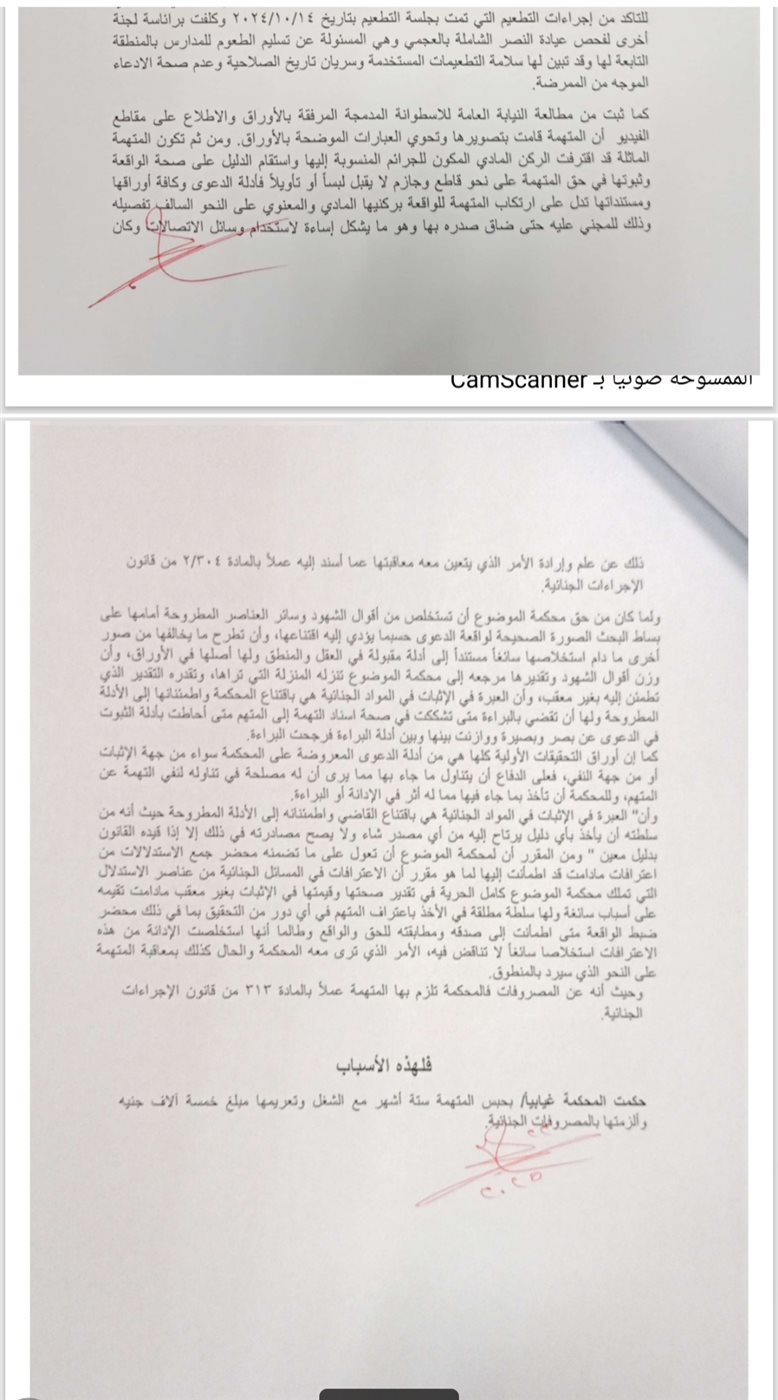 للتأكد من إجراءات التطعيم التي تمت بجلسة التطعيم بتاريخ ٢٠٢٤/١٠/١٤ وكلفت برئاسة لجنة
أخرى لفحص عيادة النصر الشاملة بالعجمي وهي المسئولة عن تسليم الطعوم للمدارس بالمنطقة
التابعة لها وقد تبين لها سلامة التطعيمات المستخدمة وسريان تاريخ الصلاحية وعدم صحة الادعاء
الموجه من الممرضة.
كما ثبت من مطالعة النيابة العامة للاسطوانة المدمجة المرفقة بالأوراق والاطلاع على مقاطع
الفيديو أن المتهمة قامت بتصويرها وتحوي العبارات الموضحة بالأوراق. ومن ثم تكون المتهمة
الماثلة قد اقترفت الركن المادي المكون للجرائم المنسوبة إليها واستقام الدليل على صحة الواقعة
وثبوتها في حق المتهمة على نحو قاطع وجازم لا يقبل لبساً أو تأويلاً فأدلة الدعوى وكافة أوراقها
ومستنداتها تدل على ارتكاب المتهمة للواقعة بركنيها المادي والمعنوي على النحو السالف تفصيله
وذلك للمجني عليه حتى ضاق صدره بها وهو ما يشكل إساءة لاستخدام وسائل الاتصالات وكان
الممسوحة ضوئيا بـ CamScanner
ذلك عن علم وإرادة الأمر الذي يتعين معه معاقبتها عما أسند إليه عملاً بالمادة ٢/٣٠٤ من قانون
الإجراءات الجنائية.
ولما كان من حق محكمة الموضوع أن تستخلص من أقوال الشهود وسائر العناصر المطروحة أمامها على
بساط البحث الصورة الصحيحة لواقعة الدعوى حسبما يؤدي إليه اقتناعها، وأن تطرح ما يخالفها من صور
أخرى ما دام استخلاصها سائغاً مستنداً إلى أدلة مقبولة في العقل والمنطق ولها أصلها في الأوراق، وأن
وزن أقوال الشهود وتقديرها مرجعه إلى محكمة الموضوع تنزله المنزلة التي تراها، وتقدره التقدير الذي
تطمئن إليه بغير معقب، وأن العبرة في الإثبات في المواد الجنائية هي باقتناع المحكمة واطمئنانها إلى الأدلة
المطروحة ولها أن تقضي بالبراءة متى تشككت في صحة اسناد التهمة إلى المتهم متى أحاطت بأدلة الثبوت
في الدعوى عن بصر وبصيرة ووازنت بينها وبين أدلة البراءة فرجحت البراءة.
كما إن أوراق التحقيقات الأولية كلها هي من أدلة الدعوى المعروضة على المحكمة سواء من جهة الإثبات
أو من جهة النفي، فعلى الدفاع أن يتناول ما جاء بها مما يرى أن له مصلحة في تناوله لنفي التهمة عن
المتهم، وللمحكمة أن تأخذ بما جاء فيها مما له أثر في الإدانة أو البراءة.
وأن" العبرة في الإثبات في المواد الجنائية هي باقتناع القاضي واطمئنانه إلى الأدلة المطروحة حيث أنه من
سلطته أن يأخذ بأي دليل يرتاح إليه من أي مصدر شاء ولا يصح مصادرته في ذلك إلا إذا قيده القانون
بدليل معين " ومن المقرر أن لمحكمة الموضوع أن تعول على ما تضمنه محضر جمع الاستدلالات من
اعترافات مادامت قد اطمأنت إليها لما هو مقرر أن الاعترافات في المسائل الجنائية من عناصر الاستدلال
التي تملك محكمة الموضوع كامل الحرية في تقدير صحتها وقيمتها في الإثبات بغير معقب مادامت تقيمه
على أسباب سائغة ولها سلطة مطلقة في الأخذ باعتراف المتهم في أي دور من التحقيق بما في ذلك محضر
ضبط الواقعة متى اطمأنت إلى صدقه ومطابقته للحق والواقع وطالما أنها استخلصت الإدانة من هذه
الاعترافات استخلاصا سائغاً لا تناقض فيه، الأمر الذي ترى معه المحكمة والحال كذلك بمعاقبة المتهمة
على النحو الذي سيرد بالمنطوق.
وحيث أنه عن المصروفات فالمحكمة تلزم بها المتهمة عملاً بالمادة ٣١٣ من قانون الإجراءات
الجنائية.
فلهذه الأسباب
حكمت المحكمة غيابيا/ بحبس المتهمة ستة أشهر مع الشغل وتغريمها مبلغ خمسة آلاف جنيه
وألزمتها بالمصروفات الجنائية.